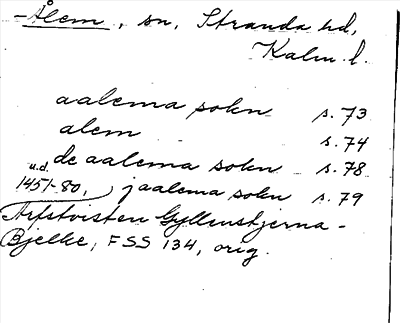 -Ålem, sn, Stranda hd,
Kalm. l.
aalema sokn s. 73
alem s. 74
de aalema sokn s. 78
u.d.
1451-80, jaalema sokn s. 79
Arfstvisten Gyllenstjerna-
Bjelke, FSS 134, orig.